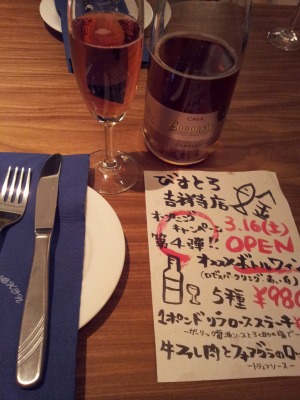 CAVA
びすとろ
吉祥寺店
オープニング
キャンペーン
3.16(土)
第4弾!!
OPEN
オススメボトルワイン
5種 ¥980
1ポンドリブロースステーキ
~ガーリック醤油ソースと
牛フィレ肉とフォアグラのロ
~トリュフソース~